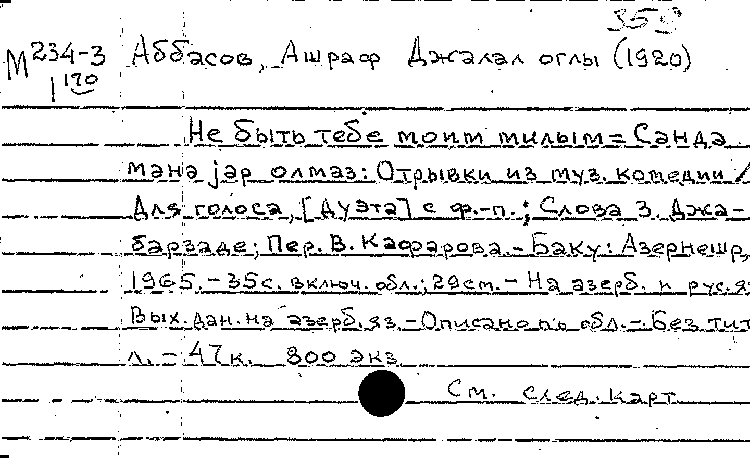 359
М 234-3 Аббасов, Ашраф Джалал оглы (1920)
1 170
Не быть тебе моим милым = Сандə
мəнə јар олмаз: Отрывки из муз. комедии /
Для голоса, [дуэта] с ф.-п.; Слова З. Джа-
барзаде; Пер. В. Кафарова. - Баку: Азернешр,
1965. - 35 с. включ. обл.; 29 см. - На азерб. и рус. я
Вых. дан. на азерб. яз. - Описано по обл. - Без тит
л. - 47 к. 800 экз.
См. след. карт